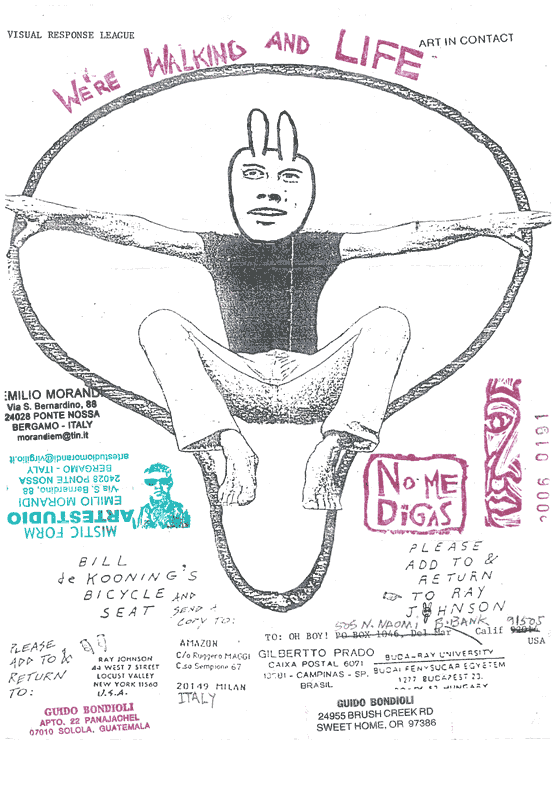 VISUAL RESPONSE LEAGUE
WE'RE WALKING AND LIFE
ART IN CONTACT
EMILIO MORANDI
Via S. Bernardino, 88
24028 PONTE NOSSA
BERGAMO - ITALY
morandiem@tin.it
MISTIC FORM
ARTESTUDIO
EMILIO MORANDI
Via S. Bernardino, 88
24028 PONTE NOSSA
BERGAMO - ITALY
artestudiomorandi@virgilio.it
NO ME
DiGAS
2006 0191
BILL
de KOONING'S
BICYCLE AND
SEAT
SEND A
COPY TO:
PLEASE
ADD TO &
RETURN
TO RAY
JOHNSON
505 N. NAOMI BURBANK 91505
TO: OH BOY! PO BOX 1046, Del Mar Calif 92014
USA
PLEASE
ADD TO &
RETURN
TO:
RAY JOHNSON
44 WEST 7 STREET
LOCUST VALLEY
NEW YORK 11560
U.S.A.
AMAZON
C/o Ruggero MAGGI
C.so Sempione 67
20149 MILAN
ITALY
GILBERTTO PRADO
CAIXA POSTAL 6071
13081 - CAMPINAS - SP.
BRASIL
BUDA-RAY UNIVERSITY
BUDAI FENYSUGAR EGYETEM
1277 BUDAPEST 23.
HUNGARY
GUIDO BONDIOLI
APTO. 22 PANAJACHEL
07010 SOLOLA, GUATEMALA
GUIDO BONDIOLI
24955 BRUSH CREEK RD
SWEET HOME, OR 97386